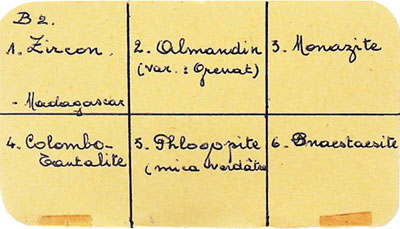 B2.
1. Zircon.
- Madagascar
2. Almandin
(var. : Grenat)
3. Monazite
4. Colombo-
Tantalite
5. Phlogopite
(mica verdâtre
6.